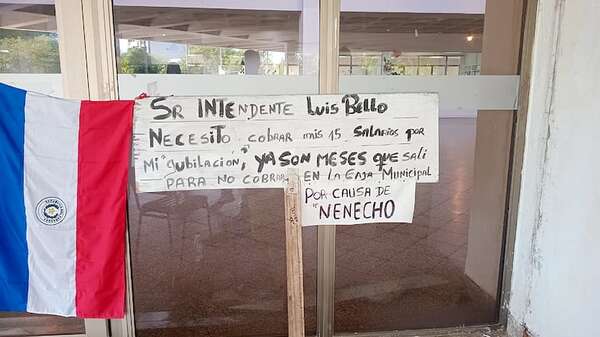 SR INTENDENTE LUIS BELLO
NECESITO COBRAR MIS 15 SALARIOS POR
MI "JUBILACION", YA SON MESES QUE SALI
PARA NO COBRAR EN LA CAJA MUNICIPAL
POR CAUSA DE
"NENECHO